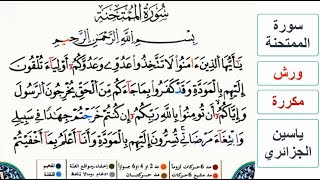 سُورَةُ الْمُمْتَحِنَة
بِسْمِ اللَّهِ الرَّحْمَٰنِ الرَّحِيمِ
يَٰأَيُّهَا الَّذِينَ ءَامَنُوا لَا تَتَّخِذُوا عَدُوِّي وَعَدُوَّكُمُ أَوْلِيَاءَ تُلْقُونَ
إِلَيْهِم بِالْمَوَدَّةِ وَقَدْ كَفَرُوا بِمَا جَاءَكُم مِّنَ الْحَقِّ يُخْرِجُونَ الرَّسُولَ
وَإِيَّاكُمُ أَن تُومِنُوا بِاللَّهِ رَبِّكُمُ إِن كُنتُمْ خَرَجْتُمْ جِهَادًا فِي سَبِيلِي
وَابْتِغَاءَ مَرْضَاتِي تُسِرُّونَ إِلَيْهِم بِالْمَوَدَّةِ وَأَنَا أَعْلَمُ بِمَا أَخْفَيْتُمْ
سورة
الممتحنة
ورش
مكررة
ياسين
الجزائري